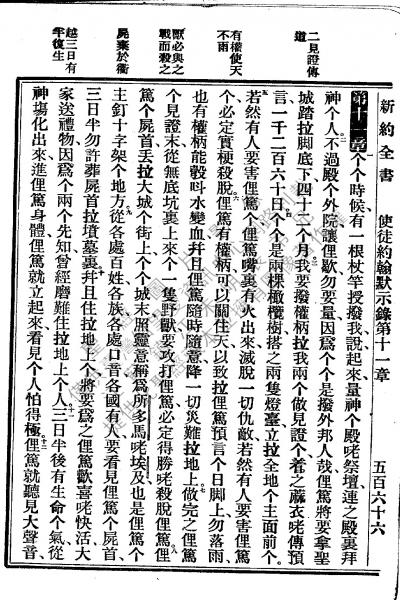 新約全書 使徒約翰默示錄第十一章 五百六十六
二見證傳道
有權使天不雨
獸必與之戰而殺之
屍棄於衢
越三日有半復生
第十一章 个个時候有一根杖竿授撥我說起來量神个殿咾祭壇連之殿裏拜
神个人二不過殿个外院讓俚歇勿要量因爲个个是撥外邦人哉俚篤將要拿聖
城踏拉脚底下四十二个月三我要撥權柄拉我兩个做見證个着之蔴衣咾傳預
言一千二百六十日四个个是兩棵橄欖樹搭之兩隻燈臺立拉全地个主面前个五
若然有人要害俚篤个俚篤嘴裏有火出來滅脫一切仇敵若然有人要害俚篤
个必定實梗殺脫六俚篤有權柄可以關住天以致拉俚篤預言个日脚上勿落雨
也有權柄能彀呌水變血幷且俚篤隨時隨意降一切災難拉地上七做完之俚篤
个見證末從無底坑裏上來个一隻野獸要攻打俚篤必定得勝咾殺脫俚篤八俚
篤个屍首丟拉大城个街上个个城末照靈意稱爲所多馬咾埃及也是俚篤个
主釘十字架个地方九從各處百姓各族各處口音各國有人要看見俚篤个屍首
三日半勿許葬屍首拉墳墓裏十幷且住拉地上个將要爲之俚篤歡喜咾快活大
家送禮物因爲个兩个先知曾經磨難住拉地上个人十一三日半後有生命个氣從
神塲化出來進俚篤身體俚篤就立起來看見个人怕得極十二俚篤就聽見大聲音